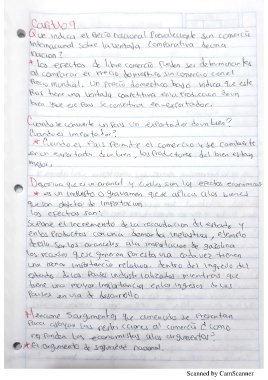 Capítulo 9
Que indica el Precio nacional Prevaleciente sin comercio
internacional sobre la ventaja Comparativa de una
nación?
* Los efectos de libre comercio Pueden ser determinantes
al comparar el Precio domestico sin comercio con el
Precio mundial. Un Precio domestico bajo indica que este
País tiene una ventaja comparativa en la Producción de un
bien que ese País se convertira en exportador.
Cuando se convierte un País un exportador de un bien?
Cuando es importador?
* Cuando el País Permite el comercio y se convierte
en un exportador de un bien, los Productores del bien estan
mejor.
Describa que es un arancel y cuales son los efectos economicos
* es un impuesto o gravamen que se aplica a los bienes
que son objetos de importación
los efectos son:
Supone el incremento de la recaudación del estado y
en los Productos con una demanda inelastica, ejemplo
de ello son los aranceles a la importación de gasolina
los recursos que se generan Por esta vía
una importancia relativa dentro del ingreso del
estado de los Países industrializados mientras que
tiene una mayor importancia en los ingresos de los
Países en vía de desarrollo
Mencione 5 argumentos que a menudo se presentan
Para apoyar las restricciones al comercio ¿como
responden los economistas a los argumentos?
* El argumento de seguridad nacional
Scanned by CamScanner